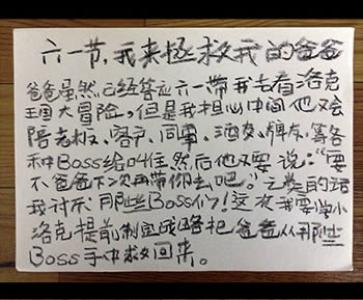 六一节，我来拯救我的爸爸
爸爸虽然已经答应六一带我去看洛克
王国大冒险，但是我担心中间他又会
陪老板、客户、同事、酒友、牌友、等各
种Boss给叫住然后他又要说：“要
不爸爸下次再带你去吧。”之类的话
我讨厌那些Boss们！这次我要学小
洛克提前制定战略把爸爸从那些
Boss手中救回来。